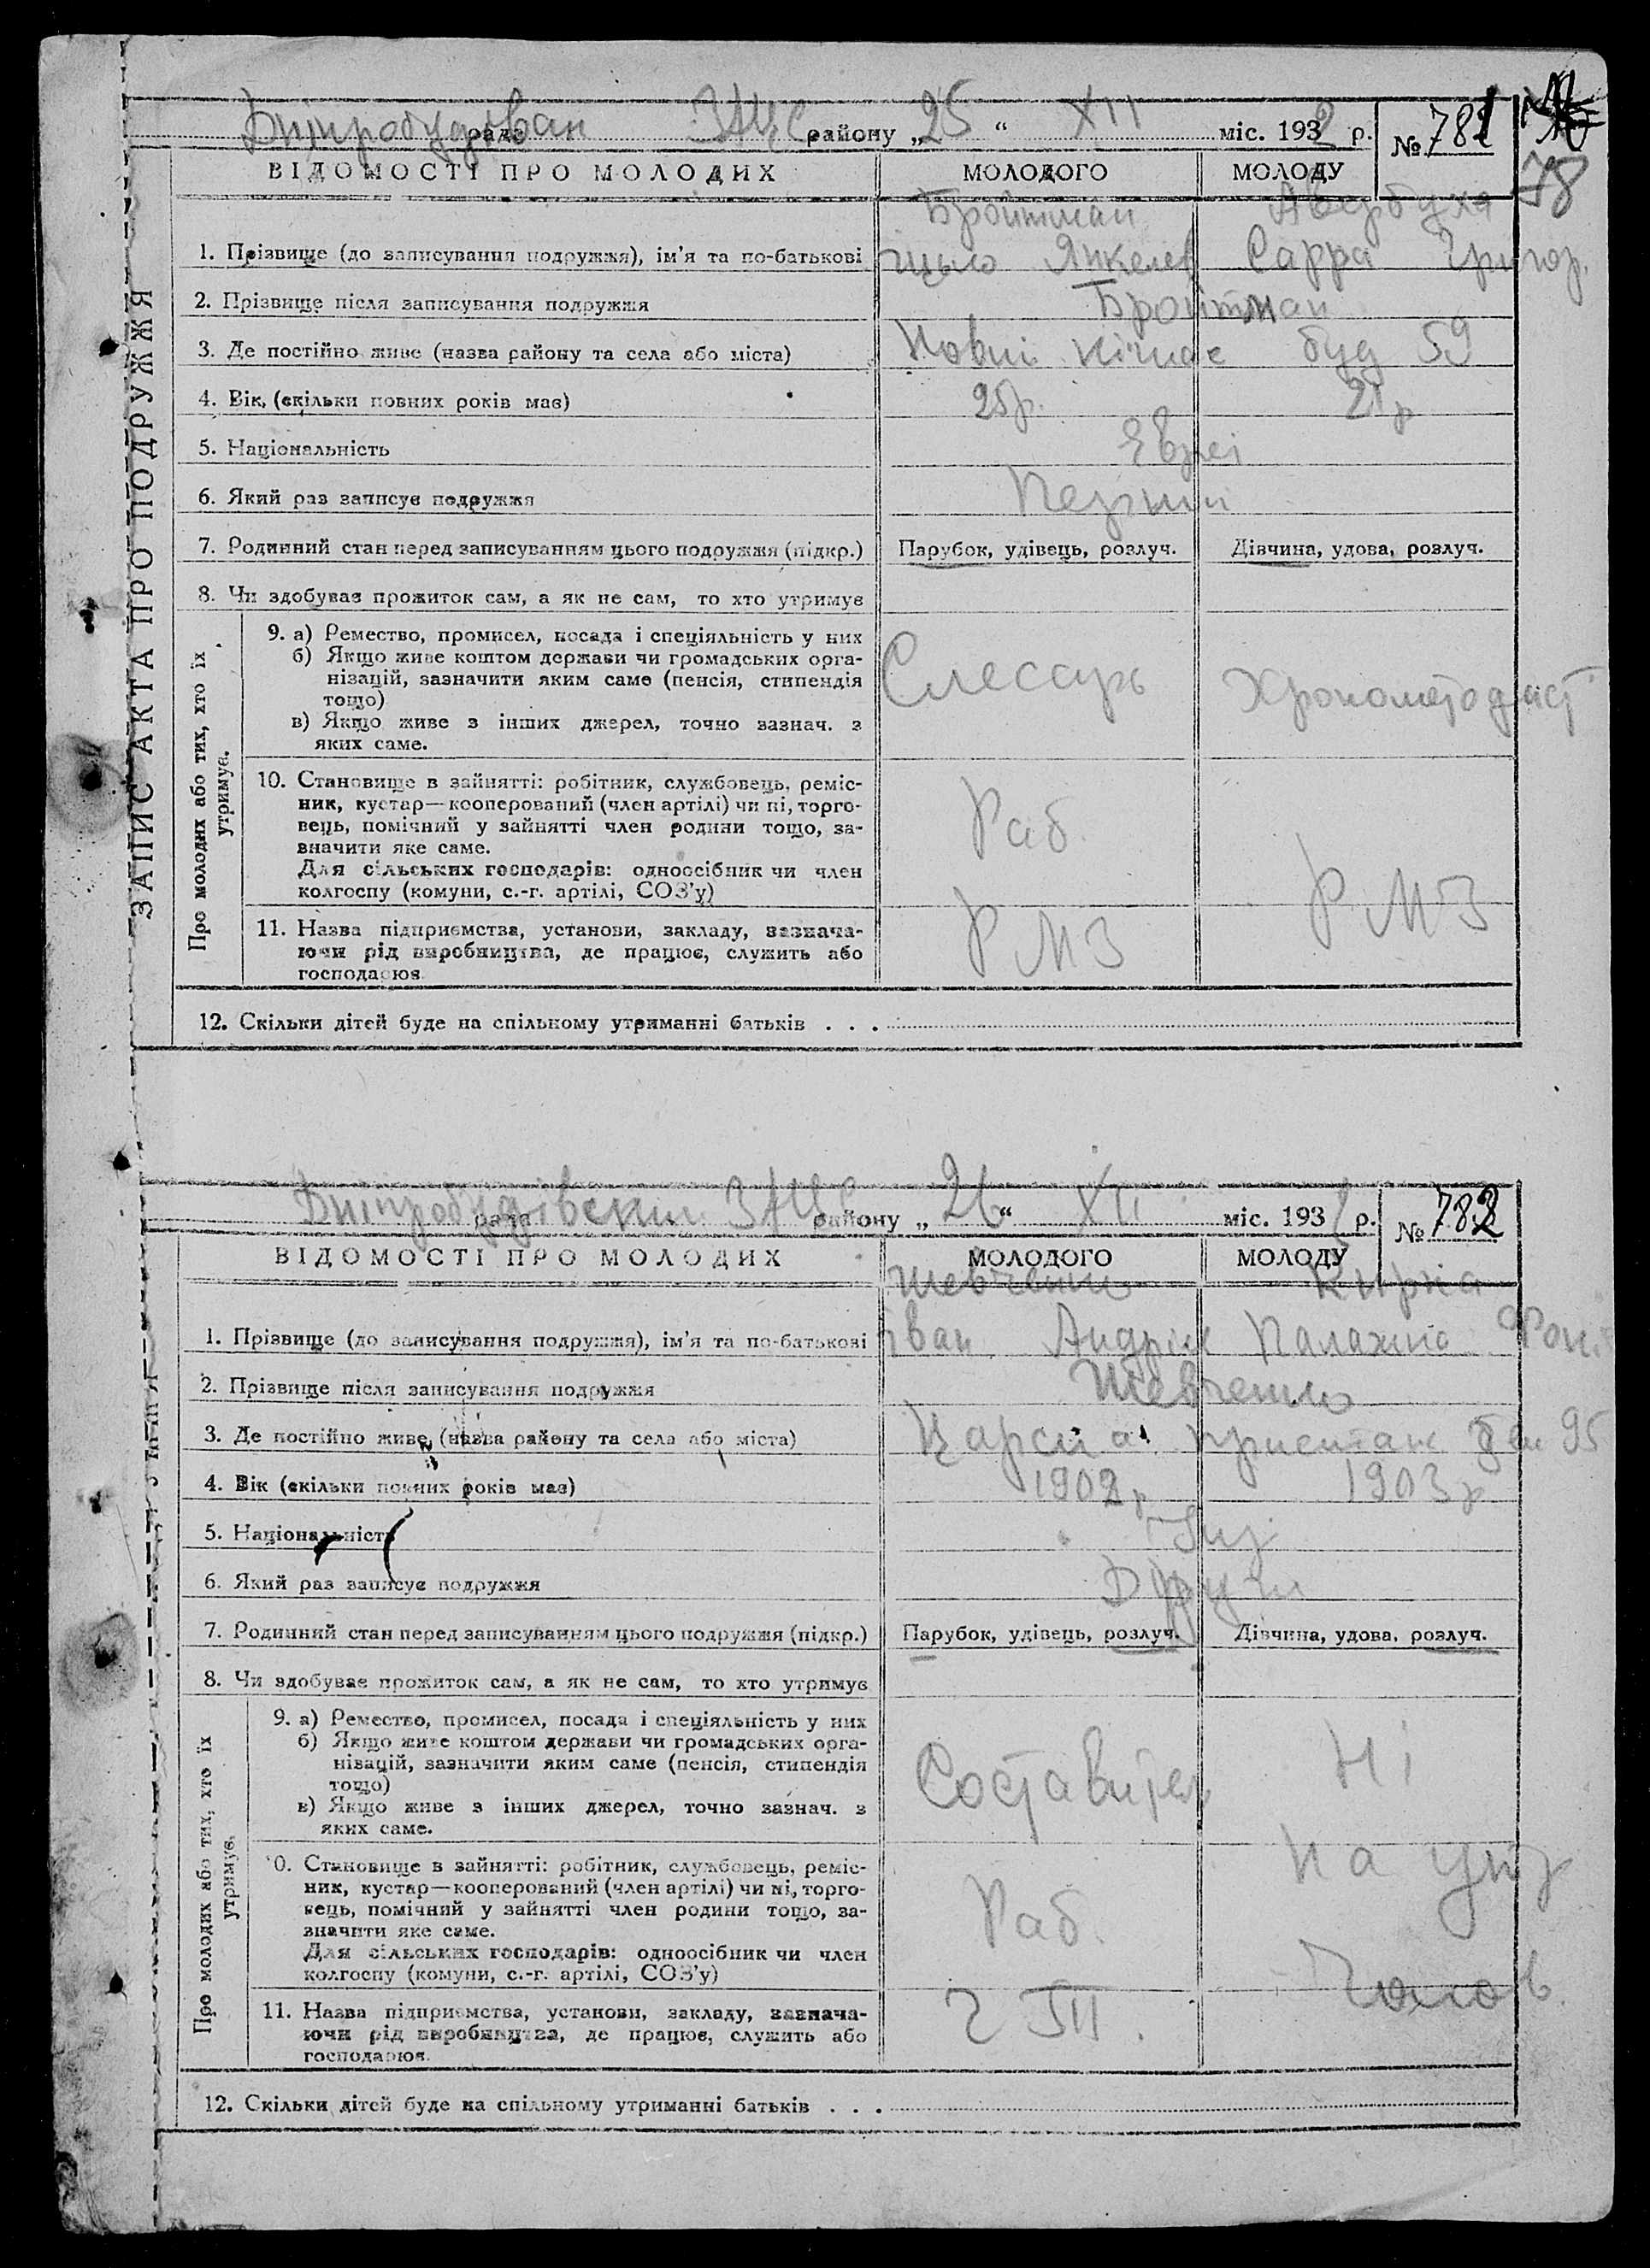 рада ЗАЦС району „25“ XII міс. 1932 р. № 781
78
ВІДОМОСТІ ПРО МОЛОДИХ МОЛОДОГО МОЛОДУ
ЗАПИС АКТА ПРО ПОДРУЖЖЯ
Бройтман Авербуха
1. Прізвище (до записування подружжя), ім'я та по-батькові Янкелев Сарра Григор.
2. Прізвище після записування подружжя Бройтман
3. Де постійно живе (назва району та села або міста) Новий Кічкас буд 59
4. Вік, (скільки повних років має) 25р. 21р
5. Національність Євреї
6. Який раз записує подружжя Перший
7. Родинний стан перед записуванням цього подружжя (підкр.) Парубок, удівець, розлуч. Дівчина, удова, розлуч.
8. Чи здобував прожиток сам, а як не сам, то хто утримує
Про молодих або тих, хто їх
утримує.
9. а) Ремество, промисел, посада і спеціяльність у них
б) Якщо живе коштом держави чи громадських орга-
нізацій, зазначити яким саме (пенсія, стипендія
тощо)
в) Якщо живе з інших джерел, точно зазнач. з
яких саме.
Слессарь Хронометодист
10. Становище в зайнятті: робітник, службовець, реміс-
ник, кустар—кооперований (член артілі) чи ні, торго-
вець, помічний у зайнятті член родини тощо, за-
значити яке саме.
Для сільських господарів: одноосібник чи член
колгоспу (комуни, с.-г. артілі, СОЗ'у)
Раб.
11. Назва підприємства, установи, закладу, зазнача-
ючи рід виробництва, де працює, служить або
господарює.
РМЗ РМЗ
12. Скільки дітей буде на спільному утриманні батьків . . .
Дніпробудівський рада ЗАЦС району „26“ XII міс. 193 р. № 782
ВІДОМОСТІ ПРО МОЛОДИХ МОЛОДОГО МОЛОДУ
Шевченко Кирка
1. Прізвище (до записування подружжя), ім'я та по-батькові Іван Андрієв Палажка
2. Прізвище після записування подружжя Шевченко
3. Де постійно живе (назва району та села або міста) Царська пристань 95
4. Вік (скільки повних років має) 1902р 1903р
5. Національність
6. Який раз записує подружжя Другий
7. Родинний стан перед записуванням цього подружжя (підкр.) Парубок, удівець, розлуч. Дівчина, удова, розлуч.
8. Чи здобуває прожиток сам, а як не сам, то хто утримує
Про молодих або тих, хто їх
утримує.
9. а) Ремество, промисел, посада і спеціяльність у них
б) Якщо живе коштом держави чи громадських орга-
нізацій, зазначити яким саме (пенсія, стипендія
тощо)
в) Якщо живе з інших джерел, точно зазнач. з
яких саме.
Составитель Ні
10. Становище в зайнятті: робітник, службовець, реміс-
ник, кустар—кооперований (член артілі) чи ні, торго-
вець, помічний у зайнятті член родини тощо, за-
значити яке саме.
Для сільських господарів: одноосібник чи член
колгоспу (комуни, с.-г. артілі, СОЗ'у)
Раб. на утр
Чолов.
11. Назва підприємства, установи, закладу, зазнача-
ючи рід виробництва, де працює, служить або
господарює.
12. Скільки дітей буде на спільному утриманні батьків . . .